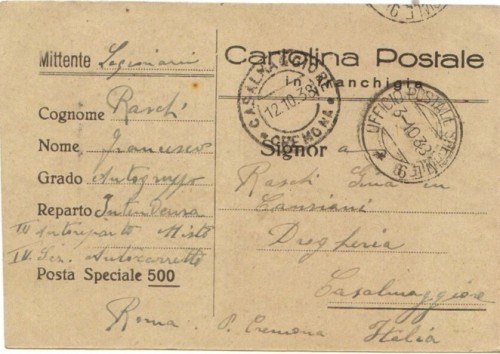 Mittente Legionario
Cognome Raschi
Nome Francesco
Grado Autogruppo
Reparto Intendenza
IV Autoreparto Misto
IV Sez. Autocarrette
Posta Speciale 500
Roma
Cartolina Postale
in franchigia
CASALMAGGIORE
12.10.38
CREMONA
UFFICIO POSTALE SPECIALE
3-10-38
Signor a
Raschi Gina in
Drogheria
Casalmaggiore
P. Cremona
Italia